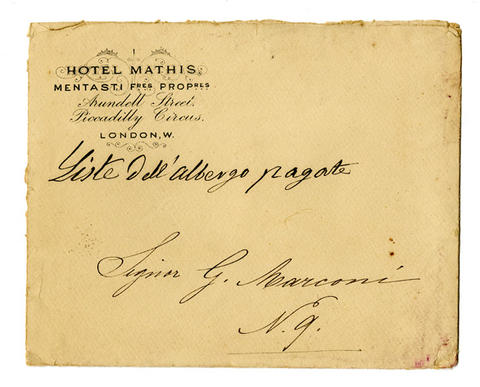 HOTEL MATHIS,
MENTASTI FRES PROPRES
Arundell Street,
Piccadilly Circus.
LONDON, W.
Liste dell'albergo pagate
Signor G. Marconi
N. 9.